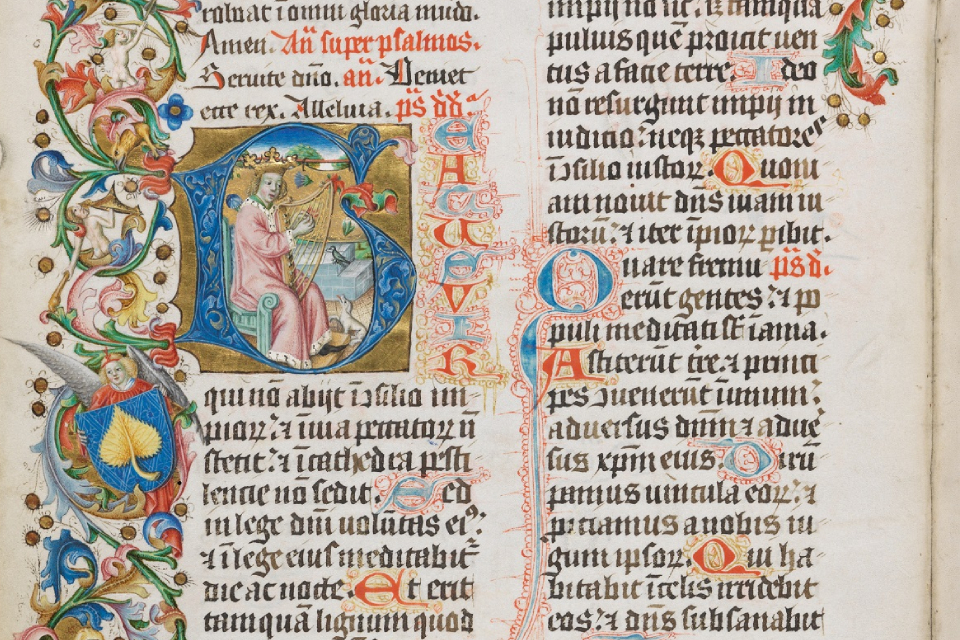 Amen. Añ super psalmos.
Seruite dño. añ. Demet
ette rex. Alleluia. ps̄ dd̄
BEATUS VIR
qui nō abijt ī ɔsilio im
piorꝝ ⁊ ī uia peccatorꝝ n̄
stetit: ⁊ ī cathedra pesti
lencie nō sedit. Sed
in lege dn̄i uolūtas eiꝰ:
⁊ ī lege eius meditabit᷑
die ac nocte. Et erit
tamquā lignum quod
impij nō sic: sꝫ tamqua
puluis quē proicit uen
tus a facie terre. Ideo
nō resurgunt impij in
iudicio: neqꝫ peccatores
ī ɔsilio iustorꝝ. Quoni
am nouit dn̄s uiam iu
storū: ⁊ iter īpiorꝝ ꝑibit.
Quare fremu ps̄ d̄.
erūt gentes: ⁊ po
puli meditati st̄ īania.
Astiterūt t̄re. ⁊ princi
pes ɔuenerūt ī unum:
aduersus dn̄m ⁊ adue
sus xp̄m eius. Dirū
pamus uincula eorꝝ: ⁊
proiciamus a nobis iu
gum ipsorꝝ. Qui ha
bitabit ī celis irridebit
eos: ⁊ dn̄s subsanabit